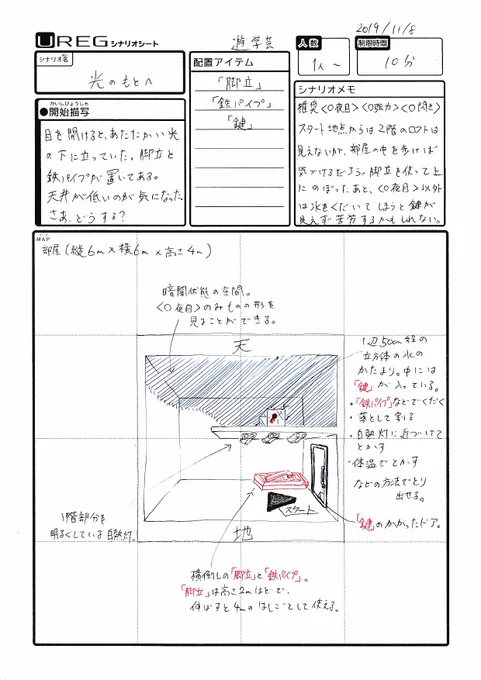 2019/11/8
UREG シナリオシート
遊学芸
人数
1人〜
制限時間
10分
シナリオ名
光のもとへ
配置アイテム
「脚立」
「鉄パイプ」
「鍵」
かいしびょうしゃ
●開始描写
目を開けると、あたたかい光
の下に立っていた。脚立と
鉄パイプが置いてある。
天井が低いのが気になった。
さあ、どうする?
シナリオメモ
推奨<○夜目><○聴力><○聞き>
スタート地点からは2階のロフトは
見えないが、部屋の中を歩けば
気づけるだろう。脚立を使って上
にのぼったあと、<○夜目>以外
は氷をくだいてしまうと鍵が
見えず苦労するかもしれない。
MAP
部屋(縦6m×横6m×高さ4m)
暗闇状態の空間。
<○夜目>のみものの形を
見ることができる。
天
1辺50cm程の
立方体の氷の
かたまり。中には
「鍵」が入っている。
・「鉄パイプ」などでくだく
・落として割る
・白熱灯に近づけて
とかす
・体温でとかす
などの方法でとり
出せる。
スタート
地
1階部分を
明るくしている白熱灯。
「鍵」のかかったドア。
横倒しの「脚立」と「鉄パイプ」。
「脚立」は高さ2mほどで、
伸ばすと4mのはしごとして使える。